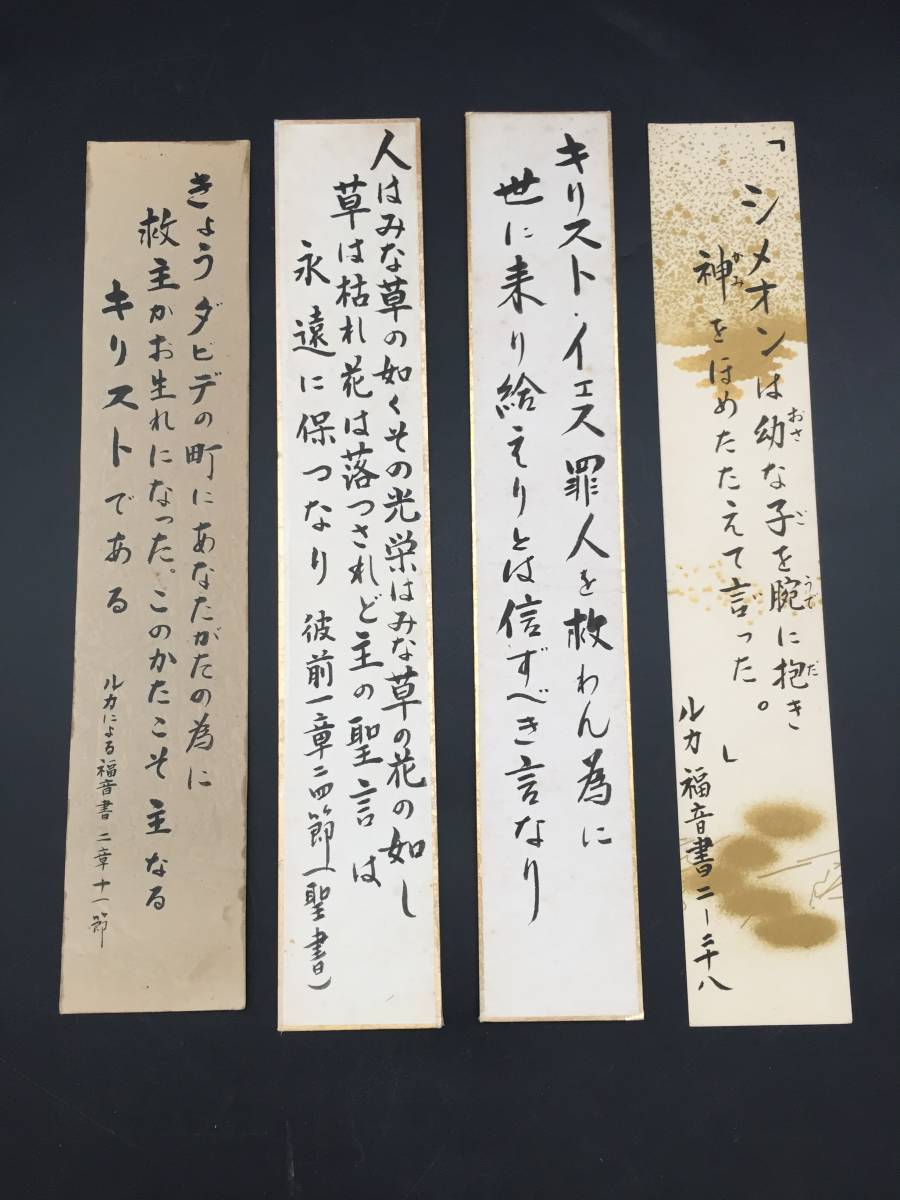 「シメオンは幼な子を腕に抱き
おさ ご うで だ
神をほめたたえて言った。」
かみ
ルカ福音書二ー二十八
キリスト・イェス罪人を救わん為に
世に来り給えりとは信ずべき言なり
人はみな草の如くその光栄はみな草の花の如し
草は枯れ花は落つされど主の聖言は
永遠に保つなり 彼前一章二四節(聖書)
きょうダビデの町にあなたがたの為に
救主がお生れになった。このかたこそ主なる
キリストである
ルカによる福音書 二章十一節